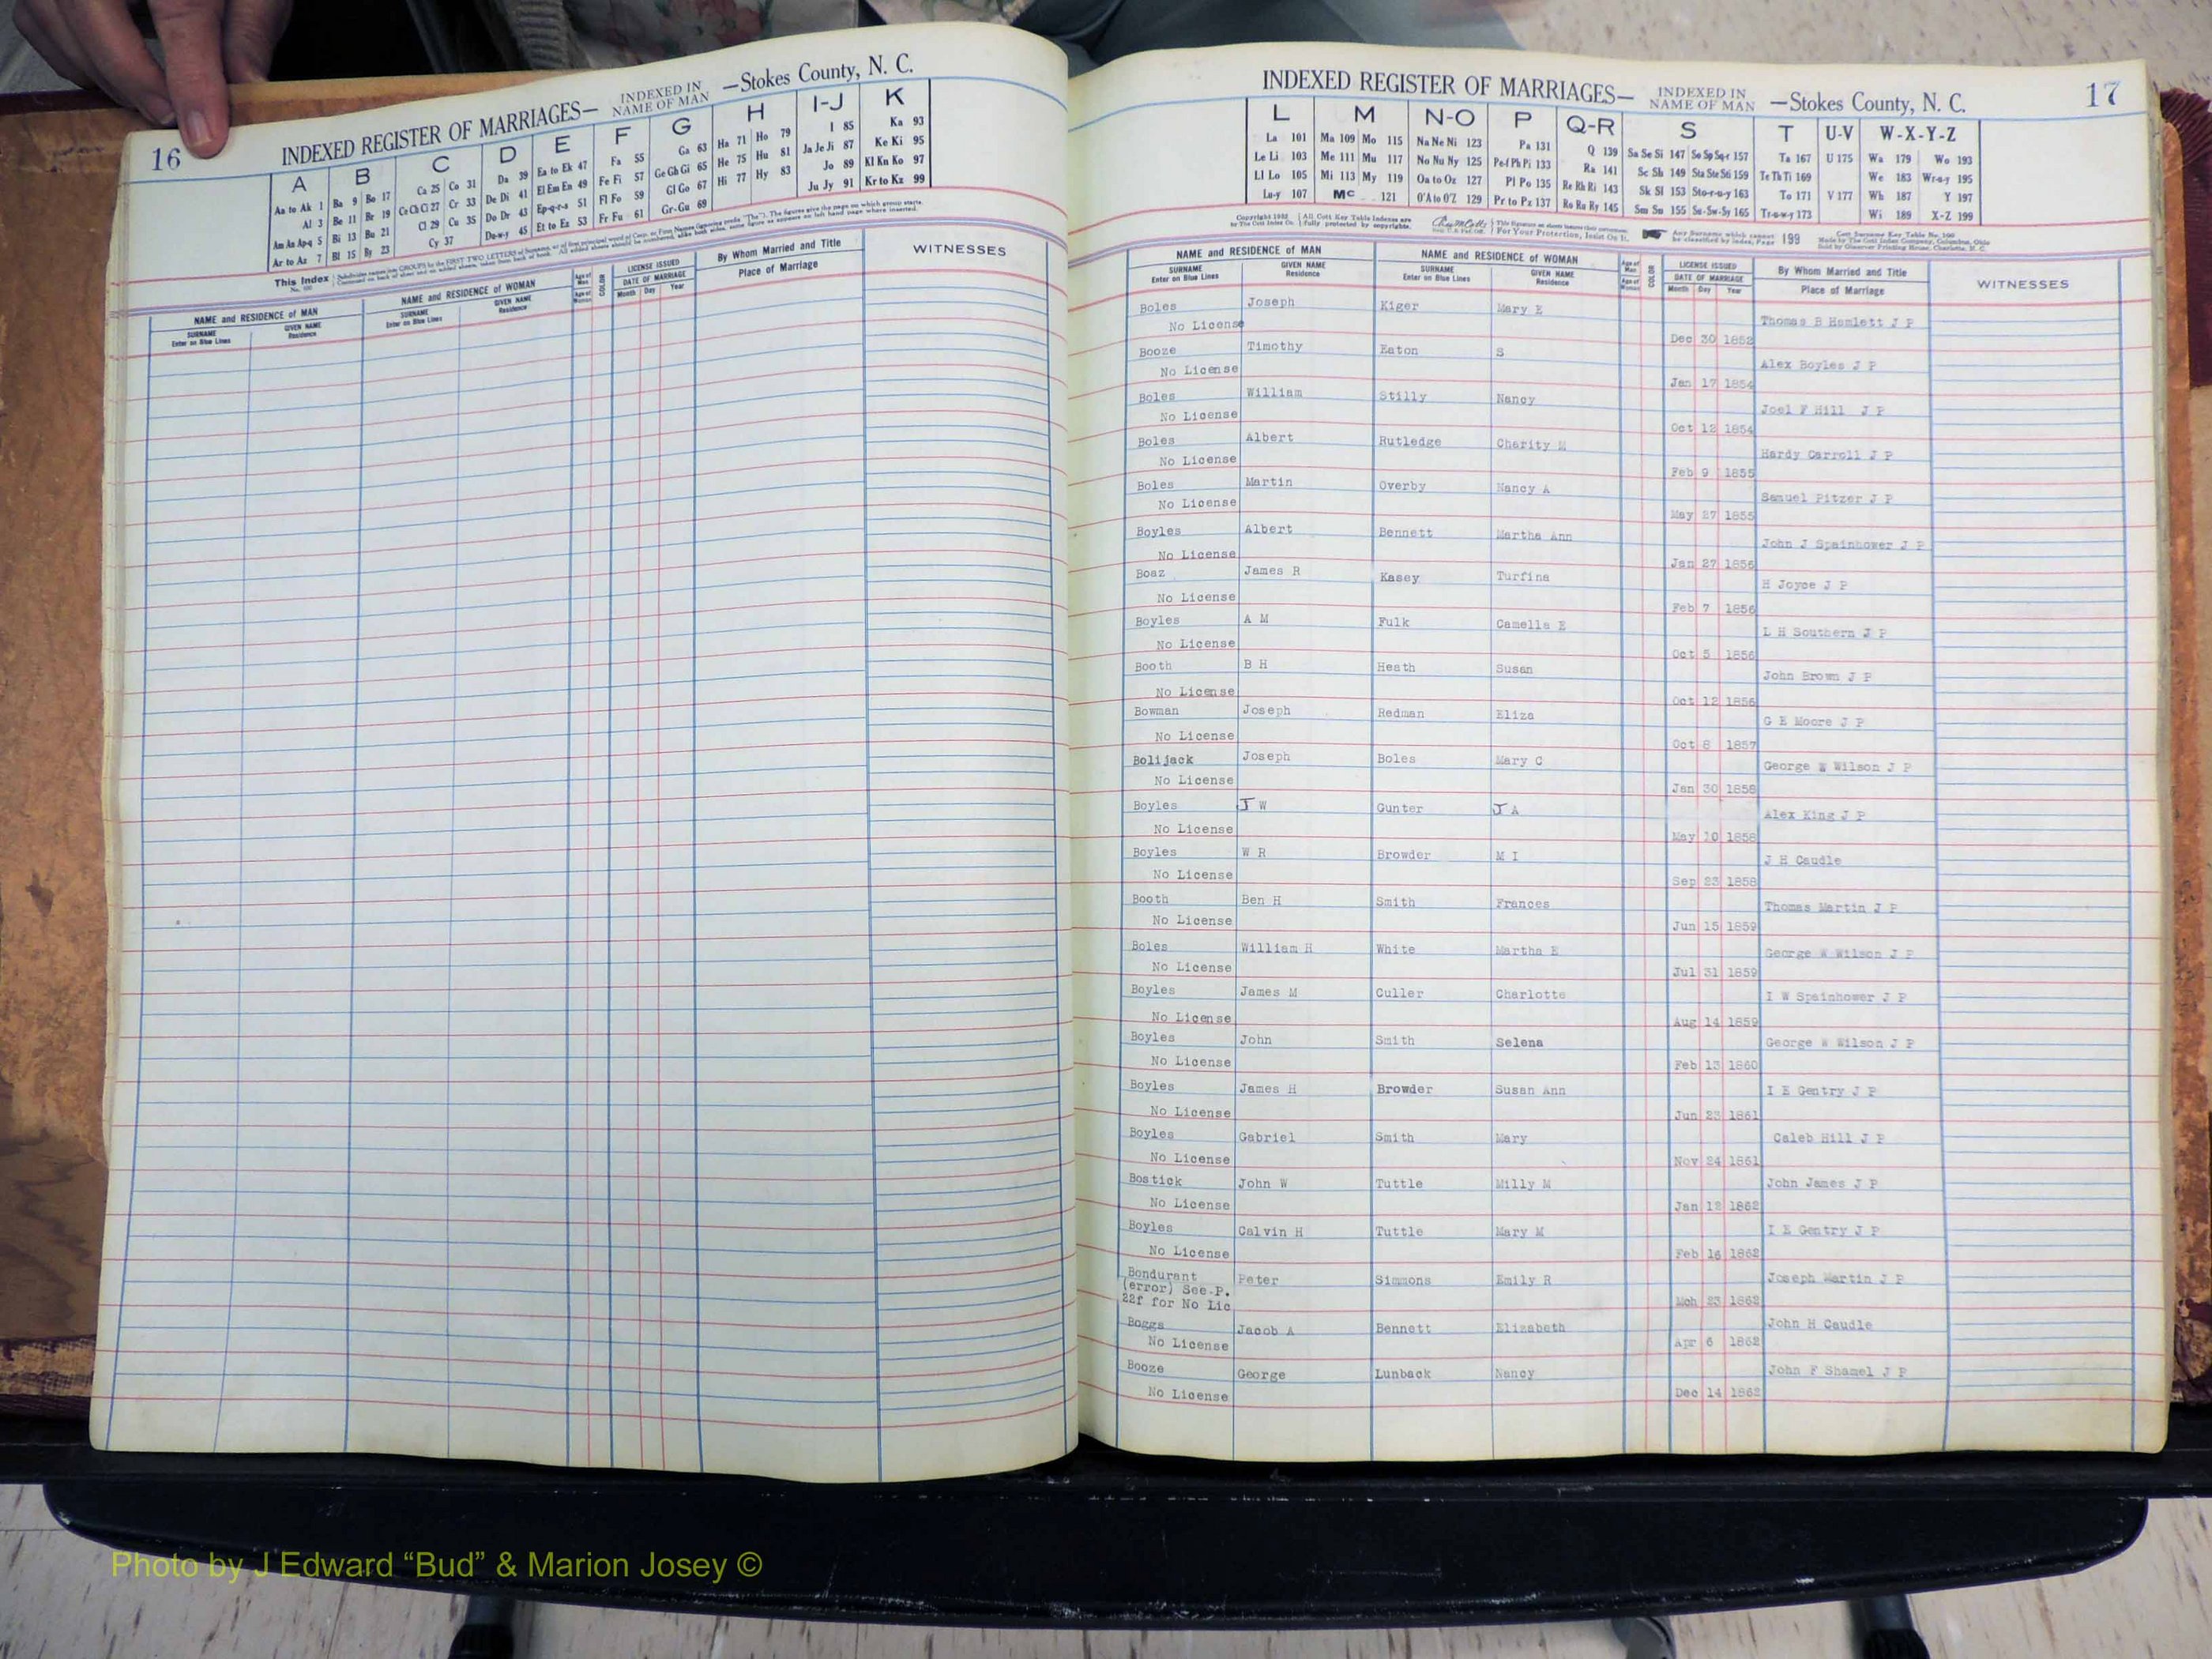 16
INDEXED REGISTER OF MARRIAGES— INDEXED IN NAME OF MAN —Stokes County, N. C.
A B C D E F G H I-J K
Aa to Ak 1 Ba 9 Bo 17 Ca 25 Co 31 Da 39 Ea to Ek 47 Fa 55 Ga 63 Ha 71 Ho 79 I 85 Ka 93
Al 3 Be 11 Br 19 Ce Ch Ci 27 Cr 33 De Di 41 El Em En 49 Fe Fi 57 Ge Gh Gi 65 He 75 Hu 81 Ja Je Ji 87 Ke Ki 95
Am An Ap-q 5 Bi 13 Bu 21 Cl 29 Cu 35 Do Dr 43 Ep-q-r-s 51 Fl Fo 59 Gl Go 67 Hi 77 Hy 83 Jo 89 Kl Kn Ko 97
Ar to Az 7 Bl 15 By 23 Cy 37 Du-w-y 45 Et to Ez 53 Fr Fu 61 Gr-Gu 69 Ju Jy 91 Kr to Kz 99
This Index
NAME and RESIDENCE of MAN NAME and RESIDENCE of WOMAN Age of Man COLOR LICENSE ISSUED By Whom Married and Title WITNESSES
SURNAME Enter on Blue Lines GIVEN NAME Residence SURNAME Enter on Blue Lines GIVEN NAME Residence Age of Woman DATE OF MARRIAGE Month Day Year Place of Marriage
INDEXED REGISTER OF MARRIAGES— INDEXED IN NAME OF MAN —Stokes County, N. C.
17
L M N-O P Q-R S T U-V W-X-Y-Z
La 101 Ma 109 Mo 115 Na Ne Ni 123 Pa 131 Q 139 Sa Se Si 147 So Sp Sq-r 157 Ta 167 U 175 Wa 179 Wo 193
Le Li 103 Me 111 Mu 117 No Nu Ny 125 Pe-f Ph Pi 133 Ra 141 Sc Sh 149 Sta Ste Sti 159 Te Th Ti 169 We 183 Wr-u-y 195
Ll Lo 105 Mi 113 My 119 Oa to Oz 127 Pl Po 135 Re Rh Ri 143 Sk Sl 153 Sto-r-u-y 163 To 171 V 177 Wh 187 Y 197
Lu-y 107 Mc 121 O'A to O'Z 129 Pr to Pz 137 Ro Ru Ry 145 Sm Sn 155 Su-Sw-Sy 165 Tr-u-w-y 173 Wi 189 X-Z 199
NAME and RESIDENCE of MAN NAME and RESIDENCE of WOMAN Age of Man COLOR LICENSE ISSUED By Whom Married and Title WITNESSES
SURNAME Enter on Blue Lines GIVEN NAME Residence SURNAME Enter on Blue Lines GIVEN NAME Residence Age of Woman DATE OF MARRIAGE Month Day Year Place of Marriage
Boles Joseph Kiger Mary E Thomas B Hamlett J P
No License Dec 30 1852
Booze Timothy Eaton S Alex Boyles J P
No License Jan 17 1854
Boles William Stilly Nancy Joel F Hill J P
No License Oct 12 1854
Boles Albert Rutledge Charity M Hardy Carroll J P
No License Feb 9 1855
Boles Martin Overby Nancy A Samuel Pitzer J P
No License May 27 1855
Boyles Albert Bennett Martha Ann John J Spainhower J P
No License Jan 27 1856
Boaz James R Kasey Turfina H Joyce J P
No License Feb 7 1856
Boyles A M Fulk Camella E L H Southern J P
No License Oct 5 1856
Booth B H Heath Susan John Brown J P
No License Oct 12 1856
Bowman Joseph Redman Eliza G E Moore J P
No License Oct 8 1857
Bolijack Joseph Boles Mary C George W Wilson J P
No License Jan 30 1858
Boyles J W Gunter J A Alex King J P
No License May 10 1858
Boyles W R Browder M I J H Caudle
No License Sep 23 1858
Booth Ben H Smith Frances Thomas Martin J P
No License Jun 15 1859
Boles William H White Martha E George W Wilson J P
No License Jul 31 1859
Boyles James M Culler Charlotte I W Spainhower J P
No License Aug 14 1859
Boyles John Smith Selena George W Wilson J P
No License Feb 13 1860
Boyles James H Browder Susan Ann I E Gentry J P
No License Jun 23 1861
Boyles Gabriel Smith Mary Caleb Hill J P
No License Nov 24 1861
Bostick John W Tuttle Milly M John James J P
No License Jan 12 1862
Boyles Calvin H Tuttle Mary M I E Gentry J P
No License Feb 16 1862
Bondurant Peter Simmons Emily R Joseph Martin J P
(error) See-P.
22f for No Lic Mch 23 1862
Boggs Jacob A Bennett Elizabeth John H Caudle
No License Apr 6 1862
Booze George Lunback Nancy John F Shamel J P
No License Dec 14 1862
Photo by J Edward “Bud” & Marion Josey ©